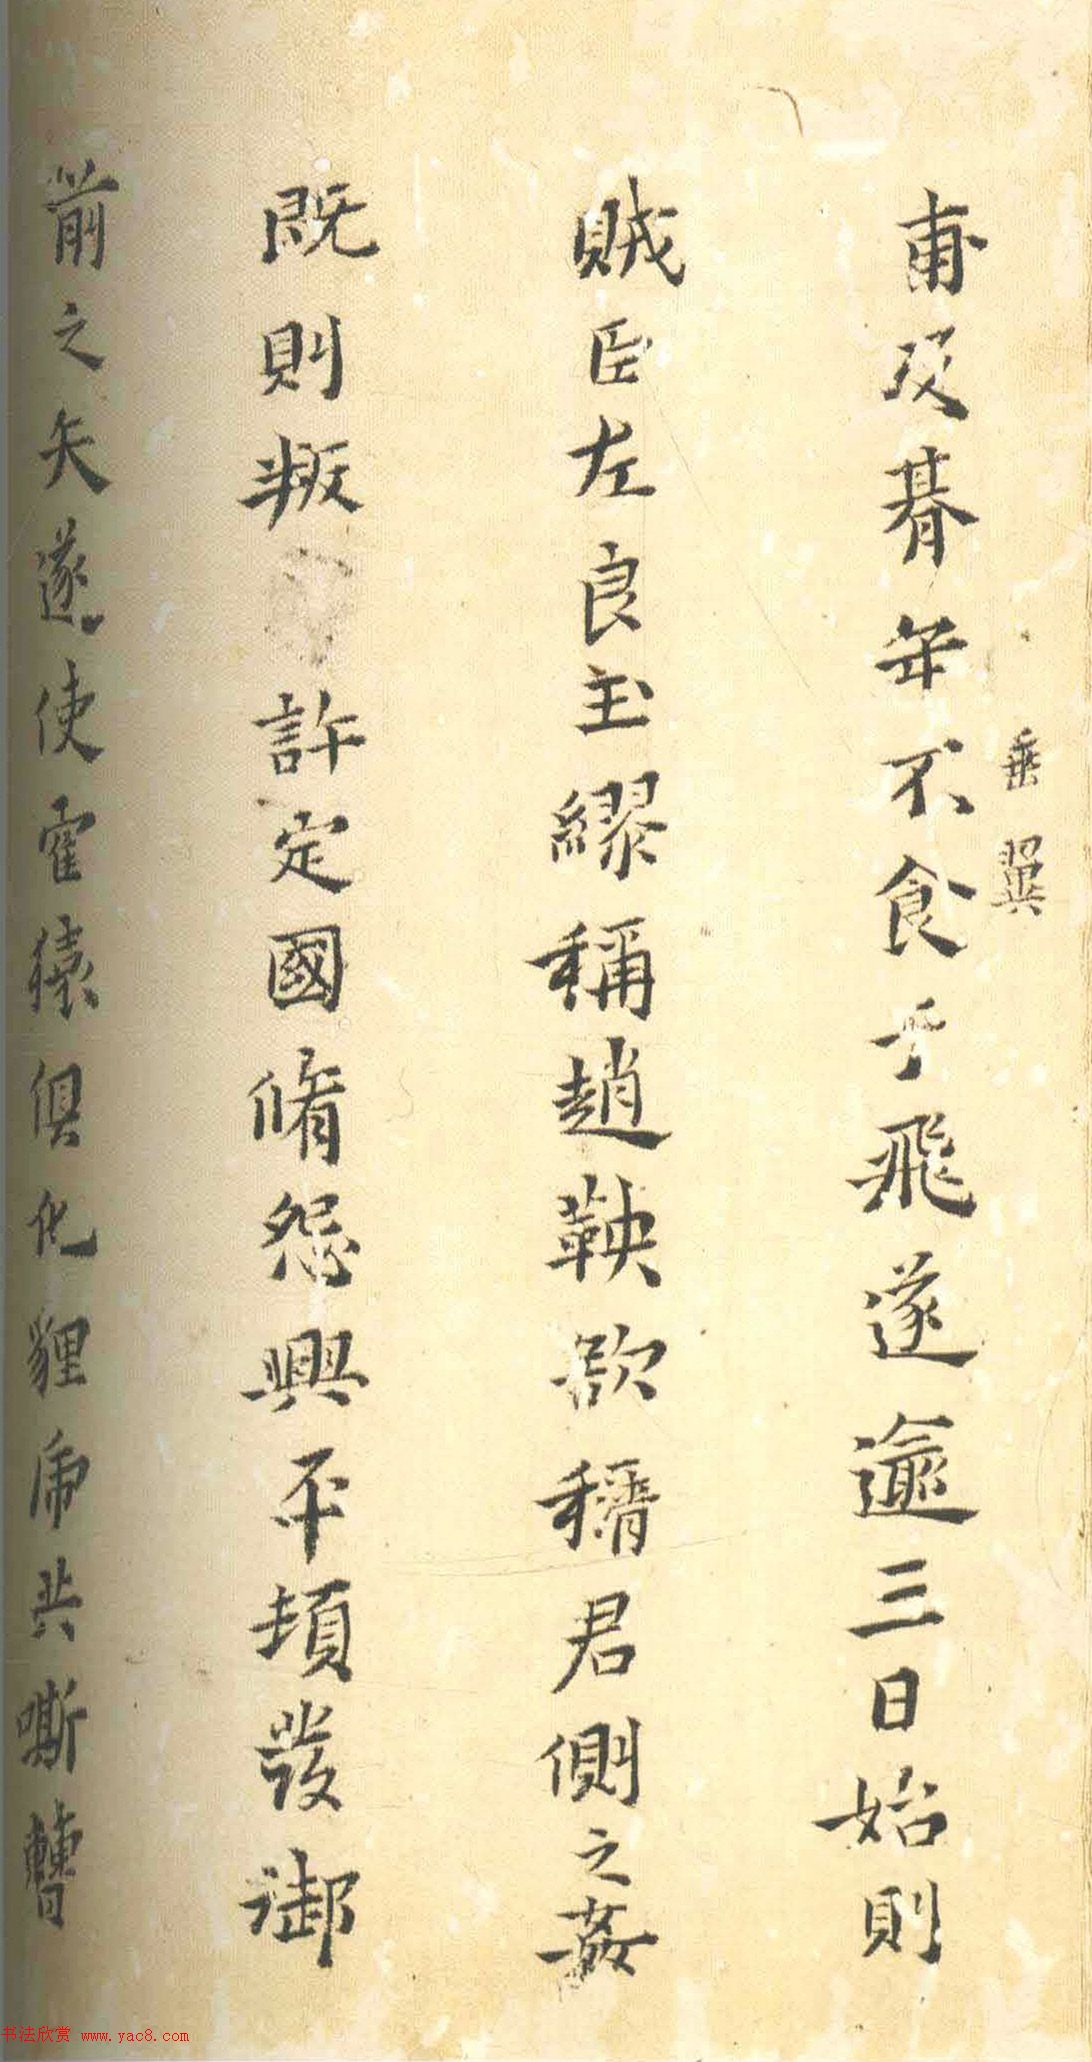 甫及朞年不食于飛遂逾三日始則
垂翼
賊臣左良玉繆稱趙鞅欲稱君側之姦
既則叛 許定國脩怨興平頓發御
前之矢遂使霍猿俱化貍帝共嘶
书法欣赏 www.yac8.com